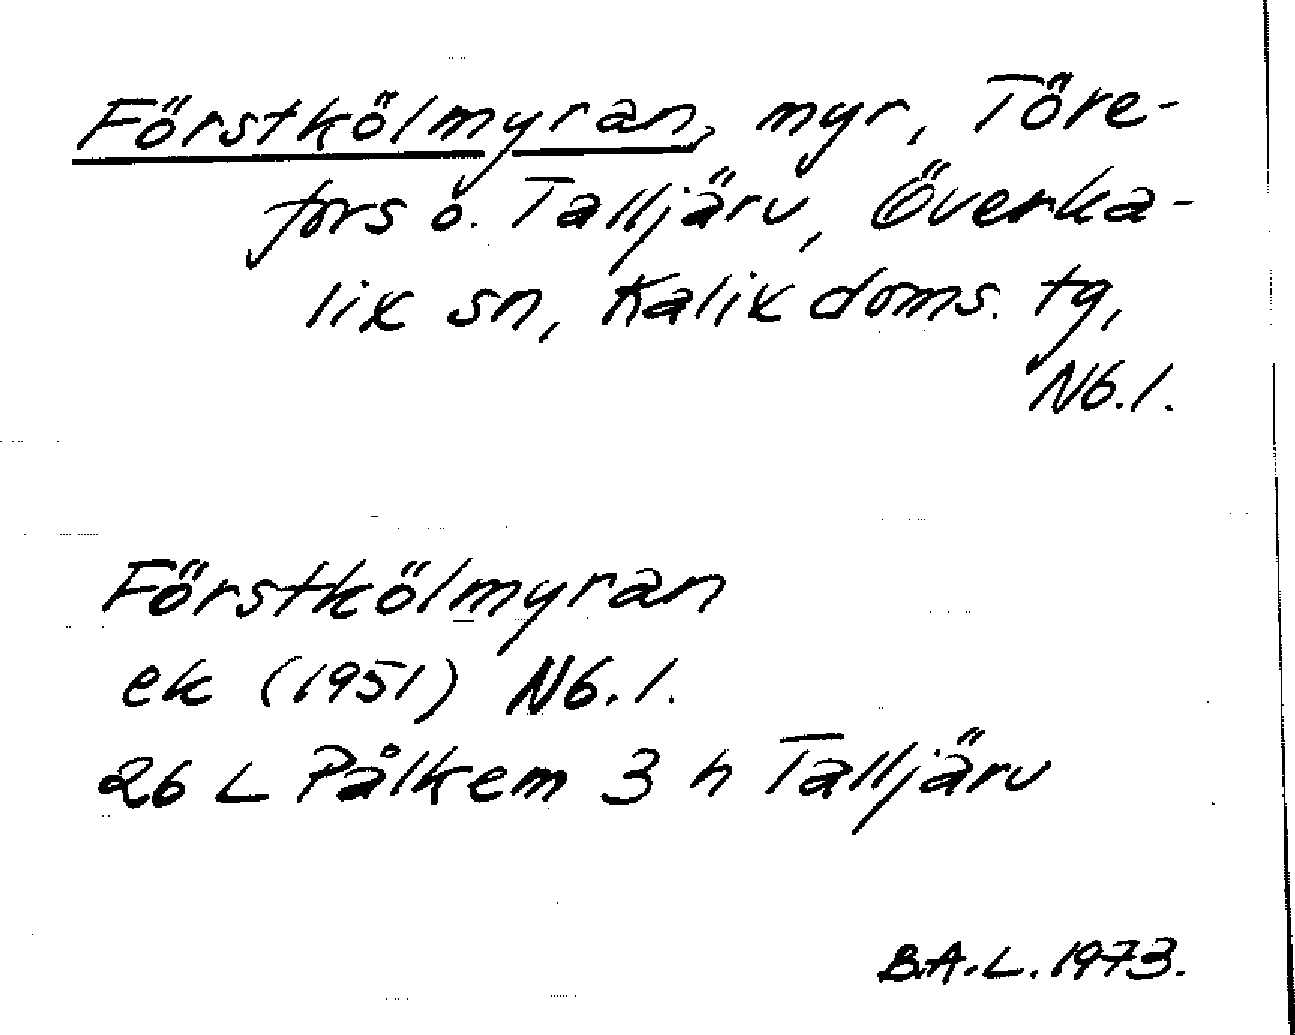 Förstkölmyran, myr, Töre-
fors o. Talljärv, Överka-
lix sn, Kalix doms. tg,
Nb.l.
Förstkölmyran
ek (1951) Nb.l.
26 L Pålkem 3 h Talljärv
B.A.L. 1973.